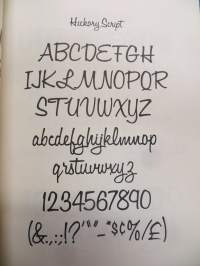 Hickory Script
ABCDEFGH
IJKLMNOPQR
STUVWXYZ
abcdefghijklmnop
qrstuvwxyz
1234567890
(&.,:;!?'“”-*$¢%/£)